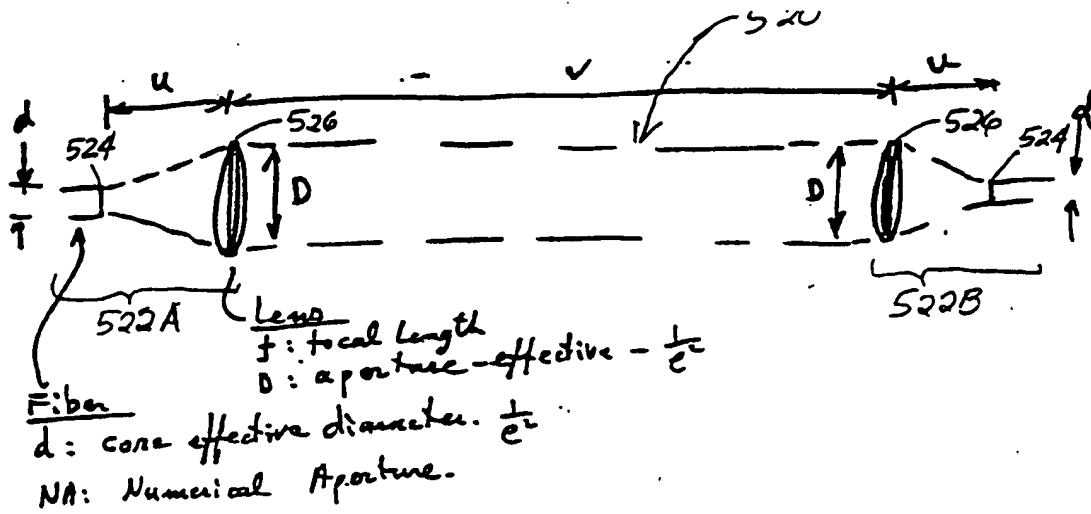 520
u
v
u
d
524
526
D
D
526
524
d
522A
522B
Lens
f: focal Length
D: aperture - effective - 1/e²
Fiber
d: core effective diameter. 1/e²
NA: Numerical Aperture.